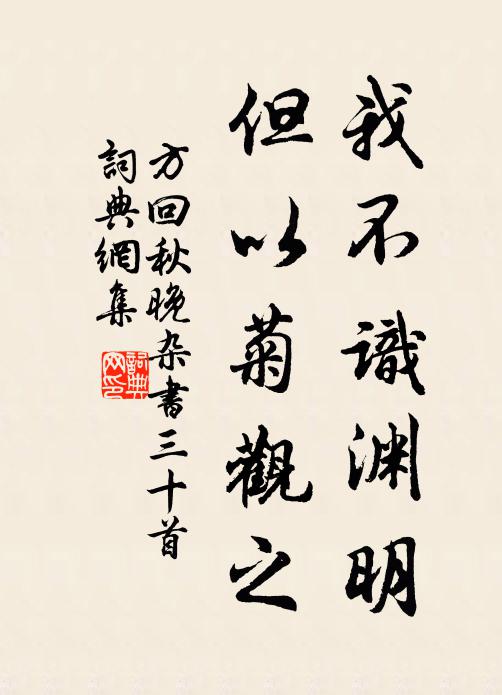 我不識渊明
但以菊觀之
方回秋晚杂書三十首
詞典網集
詞典网印